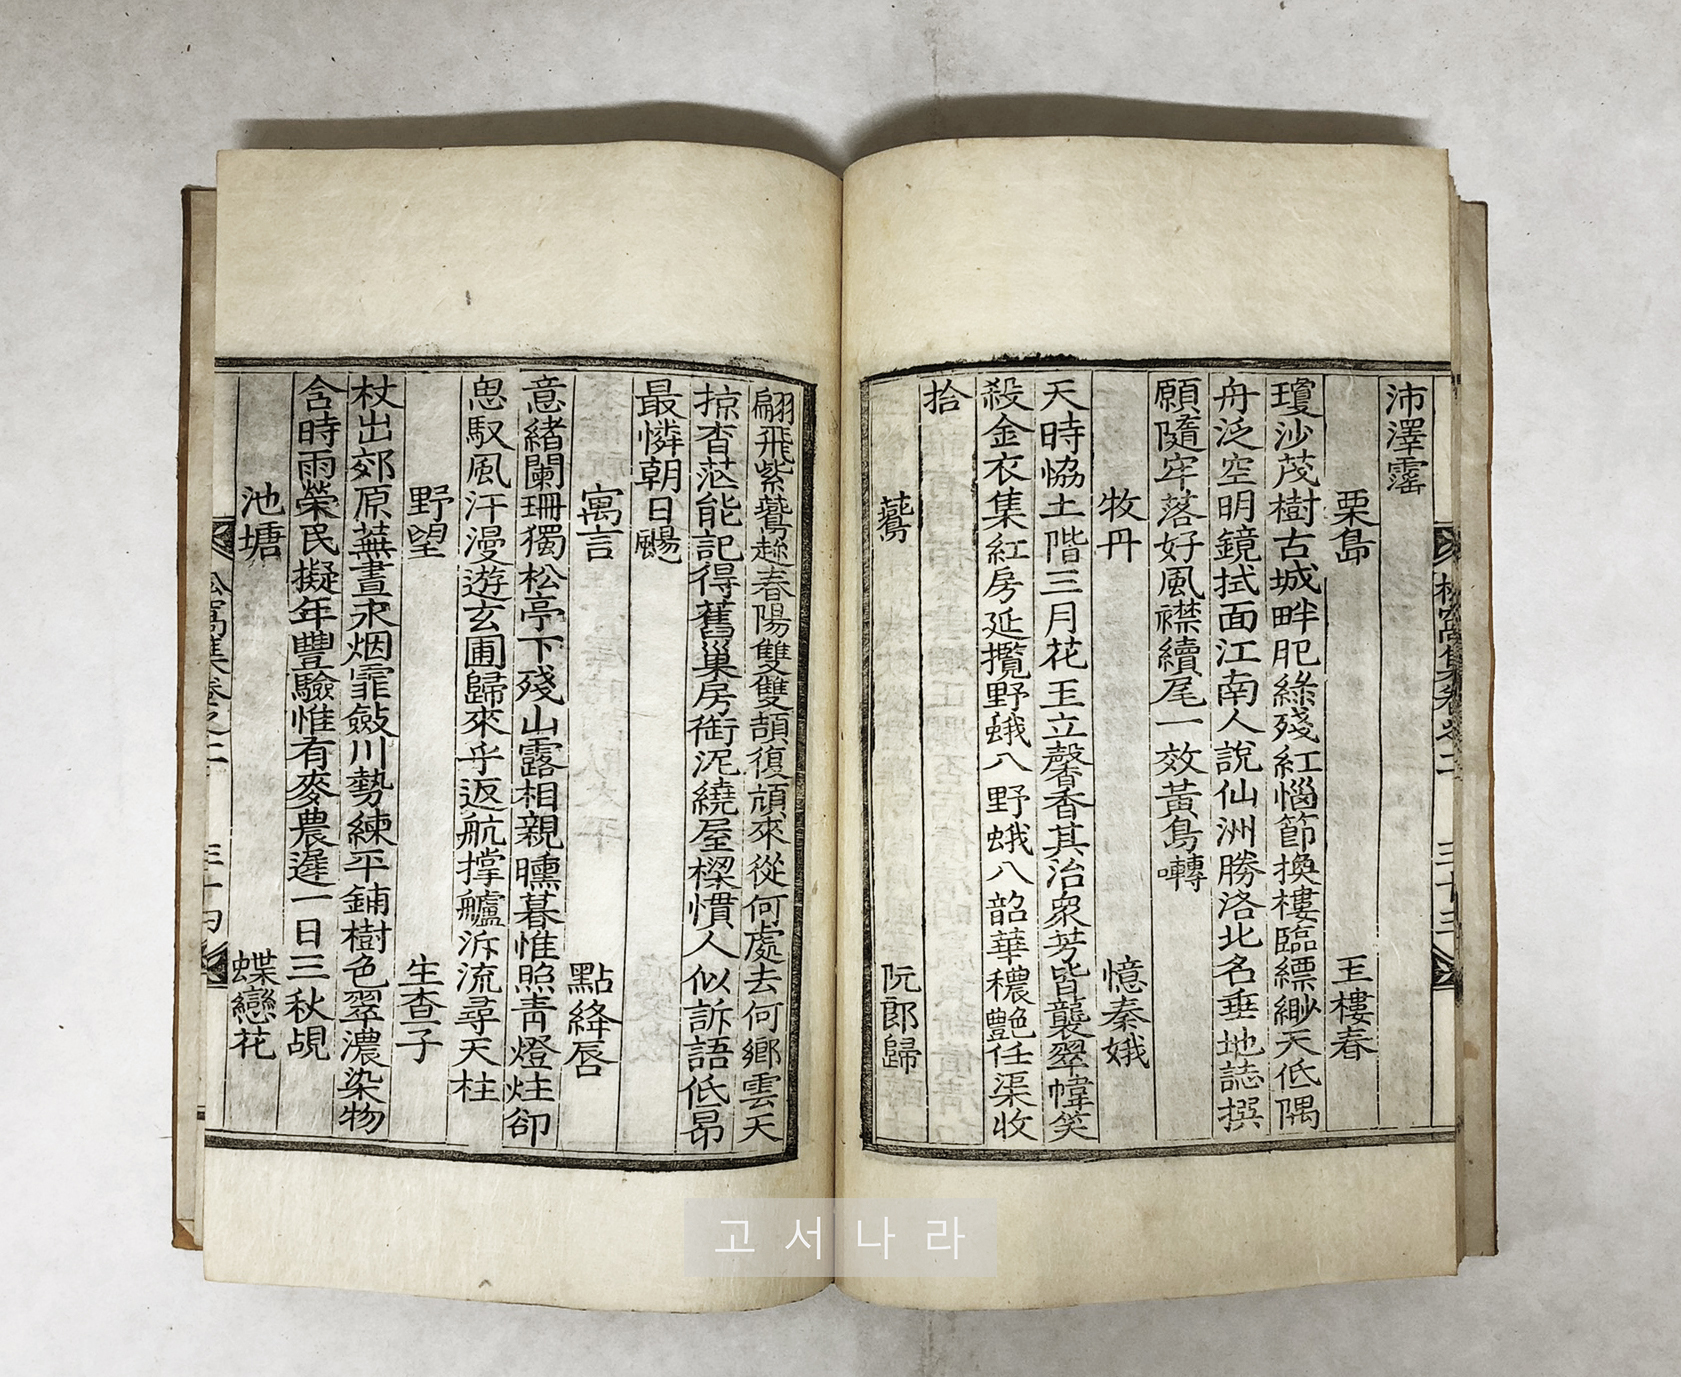 沛澤霑
栗島 玉樓春
瓊沙茂樹古城畔肥綠殘紅惱節換樓臨縹緲天低隅
舟泛空明鏡拭面江南人說仙洲勝洛北名垂地誌撰
願隨牢落好風襟續尾一效黃鳥囀
牧丹 憶秦娥
天時恊土階三月花王立馨香其治衆芳皆襲翠幃笑
殺金衣集紅房延攬野蛾八野蛾八韶華穠艶任渠收
拾
鷰 阮郎歸
翩飛紫鷰趂春陽雙雙頡復頏來從何處去何鄉雲天
掠杳茫能記得舊巢房銜泥繞屋樑慣人似訴語低昂
最憐朝日颺
寓言 點絳唇
意緒闌珊獨松亭下殘山露相親曛暮惟照靑燈炷卻
思馭風汗漫遊玄圃歸來乎返航撑艫泝流尋天柱
野望 生查子
杖出郊原蕪晝永烟霏斂川勢練平鋪樹色翠濃染物
含時雨榮民擬年豐驗惟有麥農遲一日三秋覘
池塘 蝶戀花
松窩集卷之二
고서나라